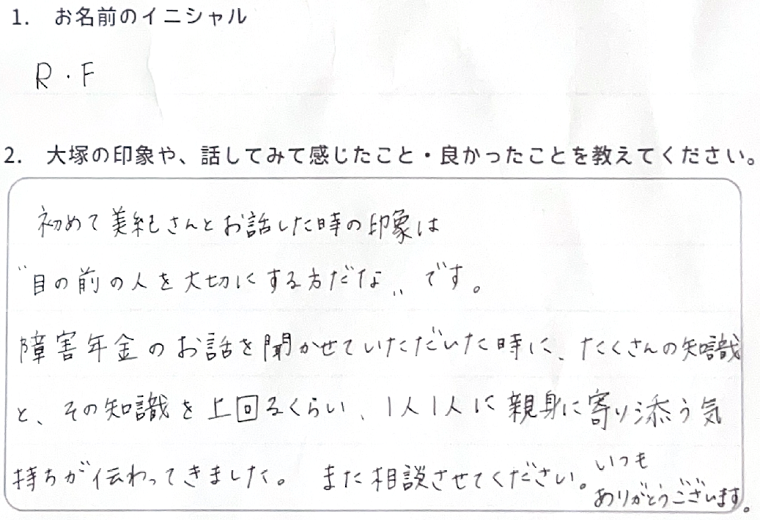 1. お名前のイニシャル
R・F
2. 大塚の印象や、話してみて感じたこと・良かったことを教えてください。
初めて美紀さんとお話した時の印象は
〝目の前の人を大切にする方だな〟です。
障害年金のお話を聞かせていただいた時に、たくさんの知識
と、その知識を上回るくらい、1人1人に親身に寄り添う気
持ちが伝わってきました。 また相談させてください。いつも
ありがとうございます。